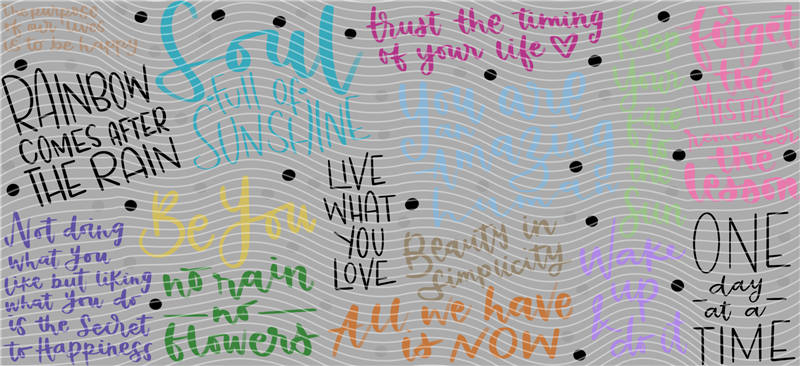 The purpose
of our lives
is to be happy
RAINBOW
COMES AFTER
THE RAIN
Soul
full of
SUNSHINE
trust the timing
of your life
You are
an
Amazing
human
Keep
your
eye
on the
Sun
forget
the
MISTAKE
remember
the
lesson
Not doing
what you
like but liking
what you do
is the secret
to Happiness
Be You
no rain
no
flowers
LIVE
WHAT
YOU
LOVE
Beauty in
Simplicity
All we have
is NOW
Wake
up
& do it
ONE
day
at a
TIME